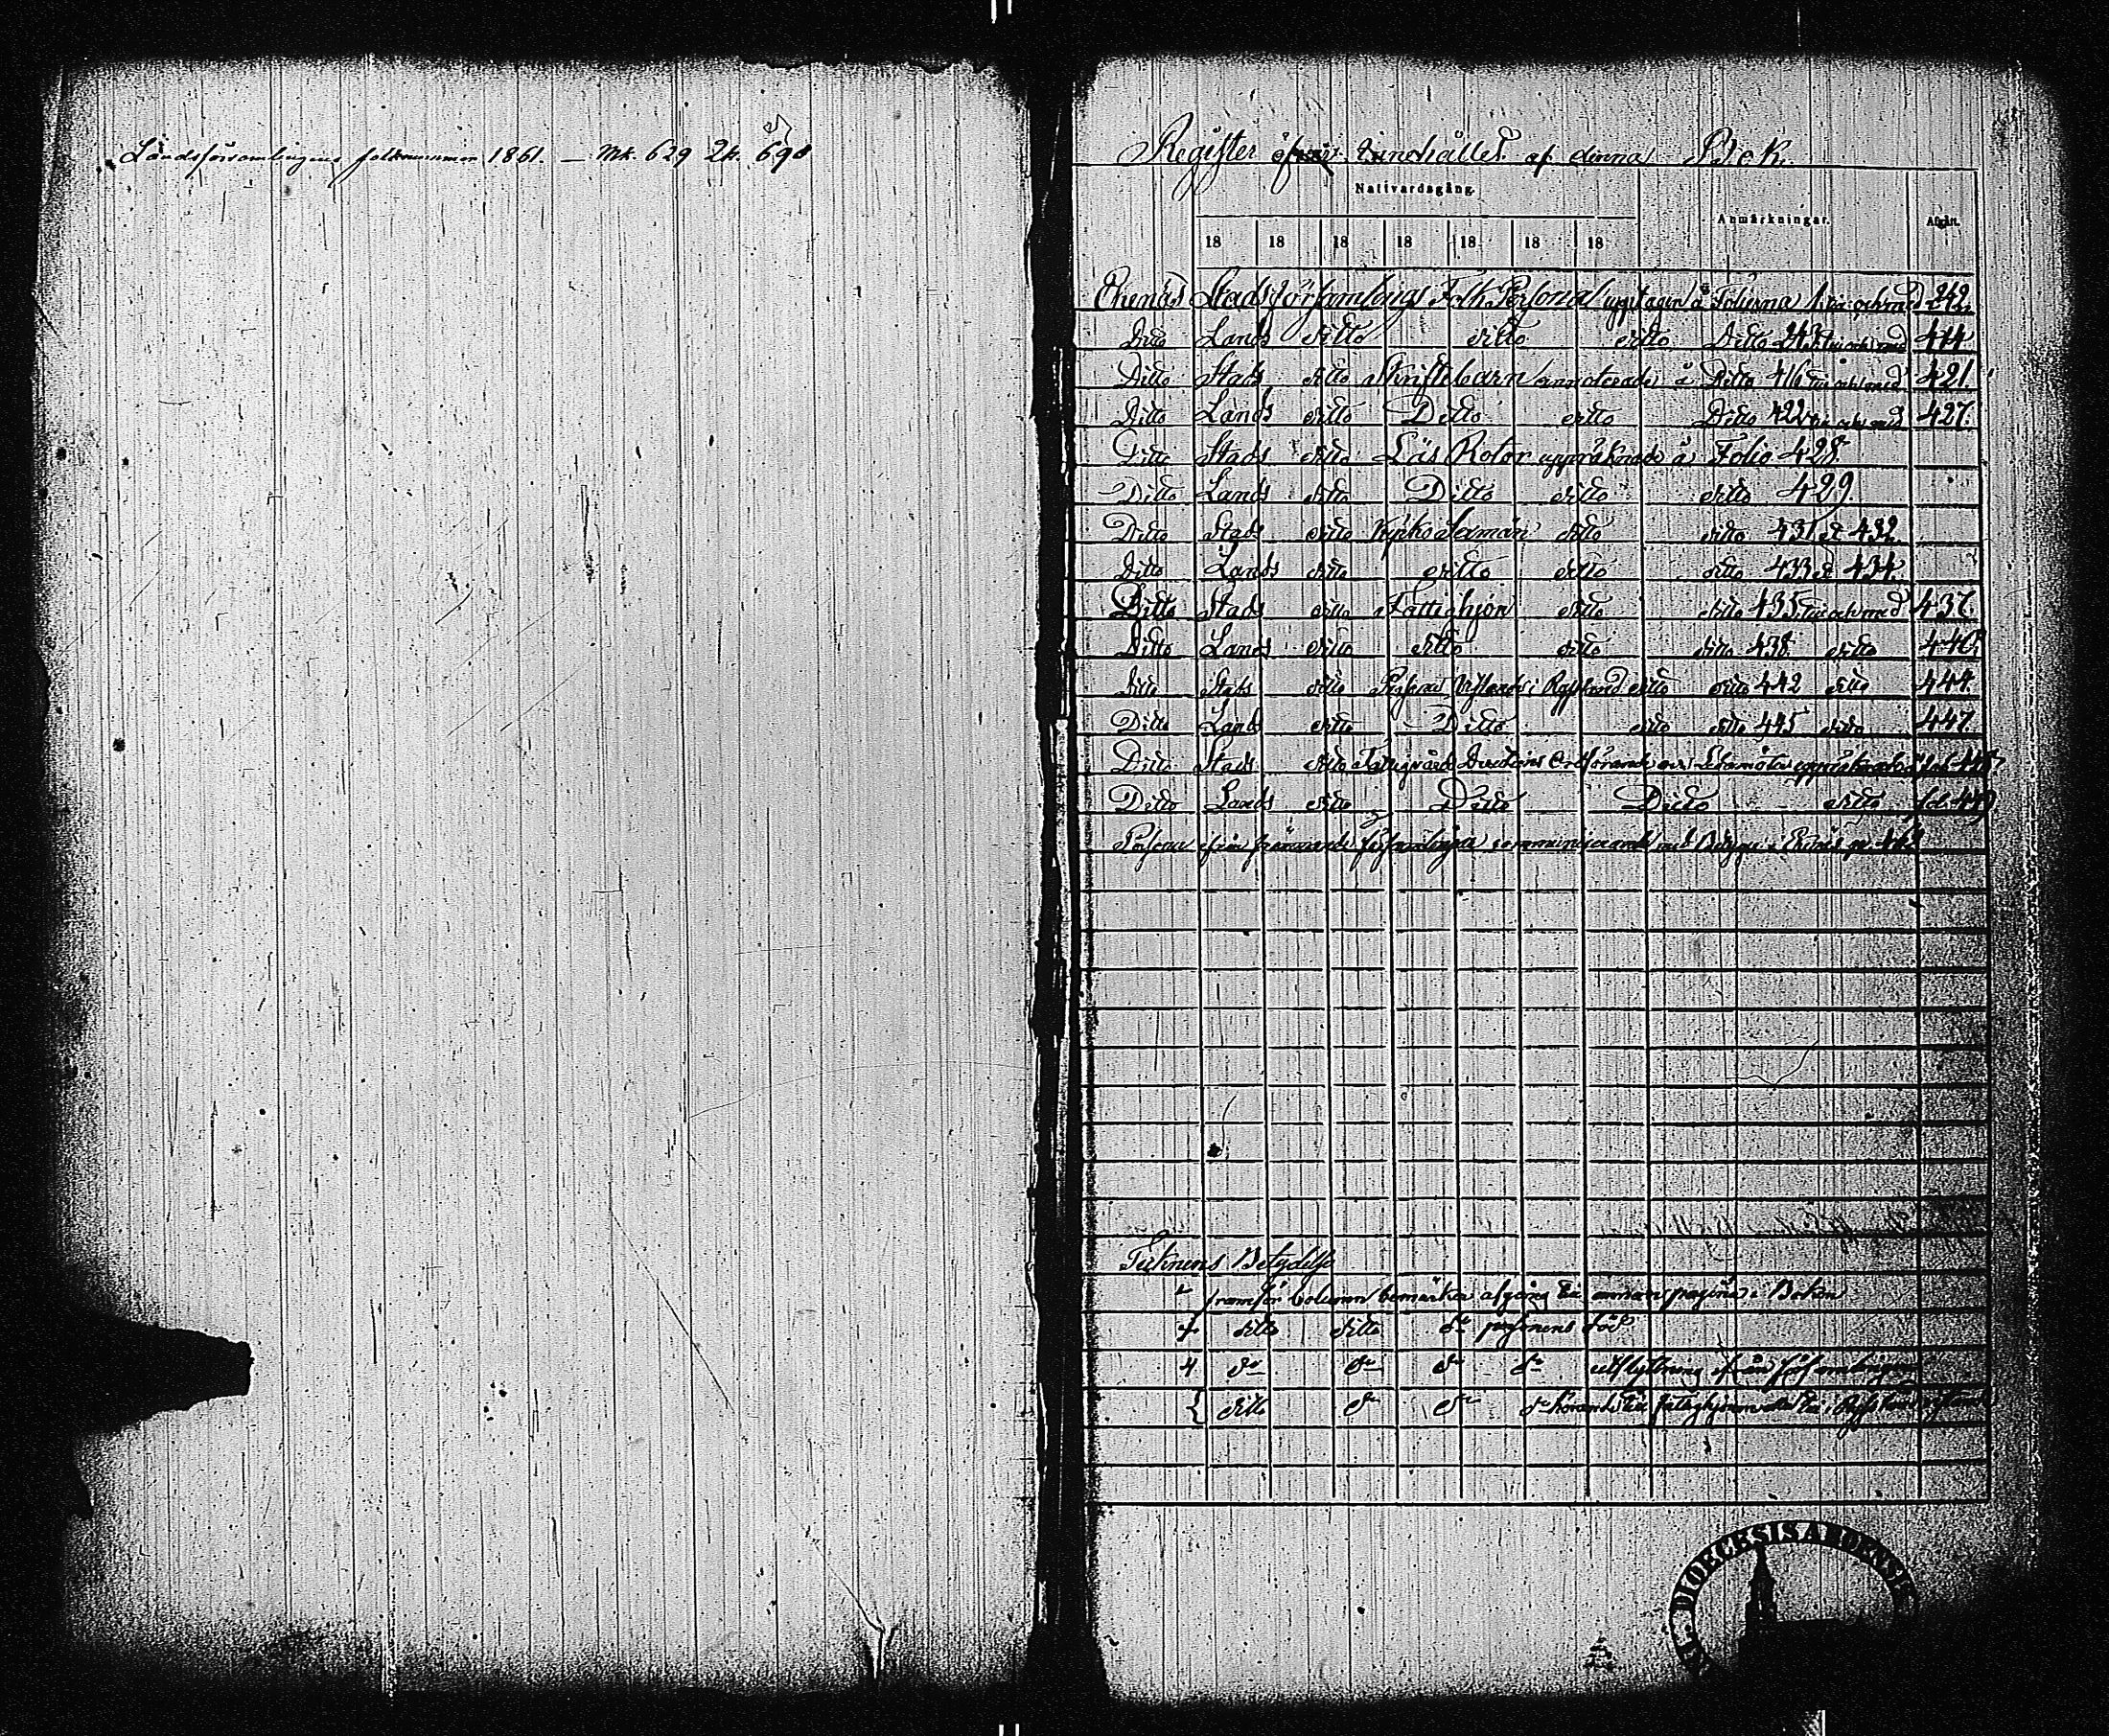 Landsförsamlingens folknummer 1861. — Mk. 629 Qk. 690
Register öfver Innehållet af denna Bok.
Nattvardsgång.
Anmärkningar.
Afgått.
18 18 18 18 18 18 18
Ekenäs Stadsförsamlings Folk Personal upptagen å Folierna 1 till och med 242.
Ditto Lands ditto ditto ditto Ditto 243 till och med 414
Ditto Stads ditto Skriftebarn annoterade å Ditto 416 till och med 421
Ditto Lands ditto Ditto ditto Ditto 422 till och med 427.
Ditto Stads ditto Läs Rotor uppräknade å Folio 428
Ditto Lands ditto Ditto ditto ditto 429.
Ditto Stads ditto Kyrko Sexmän ditto ditto 431 & 432.
Ditto Lands ditto ditto ditto ditto 433 & 434.
Ditto Stads ditto Fattighjon ditto ditto 435 till och med 437.
Ditto Lands ditto ditto ditto ditto 438 ditto 440
Ditto Stads ditto Personer Vistande i Ryssland ditto ditto 442 ditto 444.
Ditto Lands ditto Ditto ditto ditto 445 ditto 447.
Ditto Stads ditto Fattigvårds Directions Ordförande och Ledamöter uppräknade å fol. 448
Ditto Lands ditto Ditto Ditto ditto fol. 449
Personer från främmande församlingar communicerande
Teknens Betydelse
framför Column bemärker afgång till annan pagina i Boken
ditto ditto do personens död
do do do do utflyttning från församlingen
ditto do do do
DIOECESIS ABOENSIS